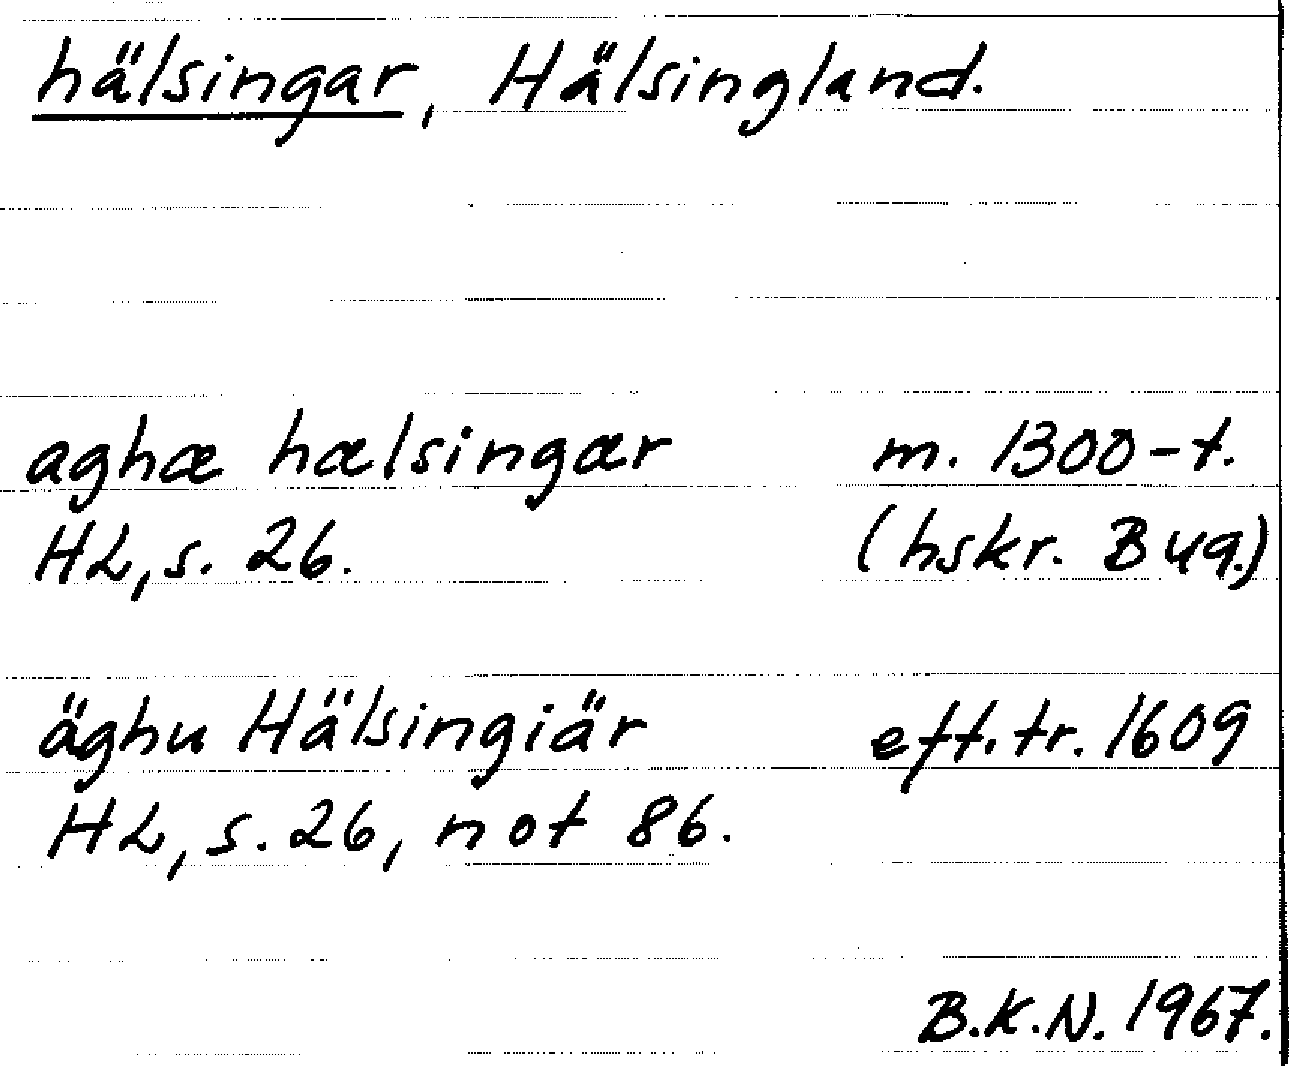 hälsingar, Hälsingland.
aghæ hælsingær m. 1300-t.
HL, s. 26. (hskr. B 49.)
äghu Hälsingiär eft. tr. 1609
HL, s. 26, not 86.
B.K.N. 1967.